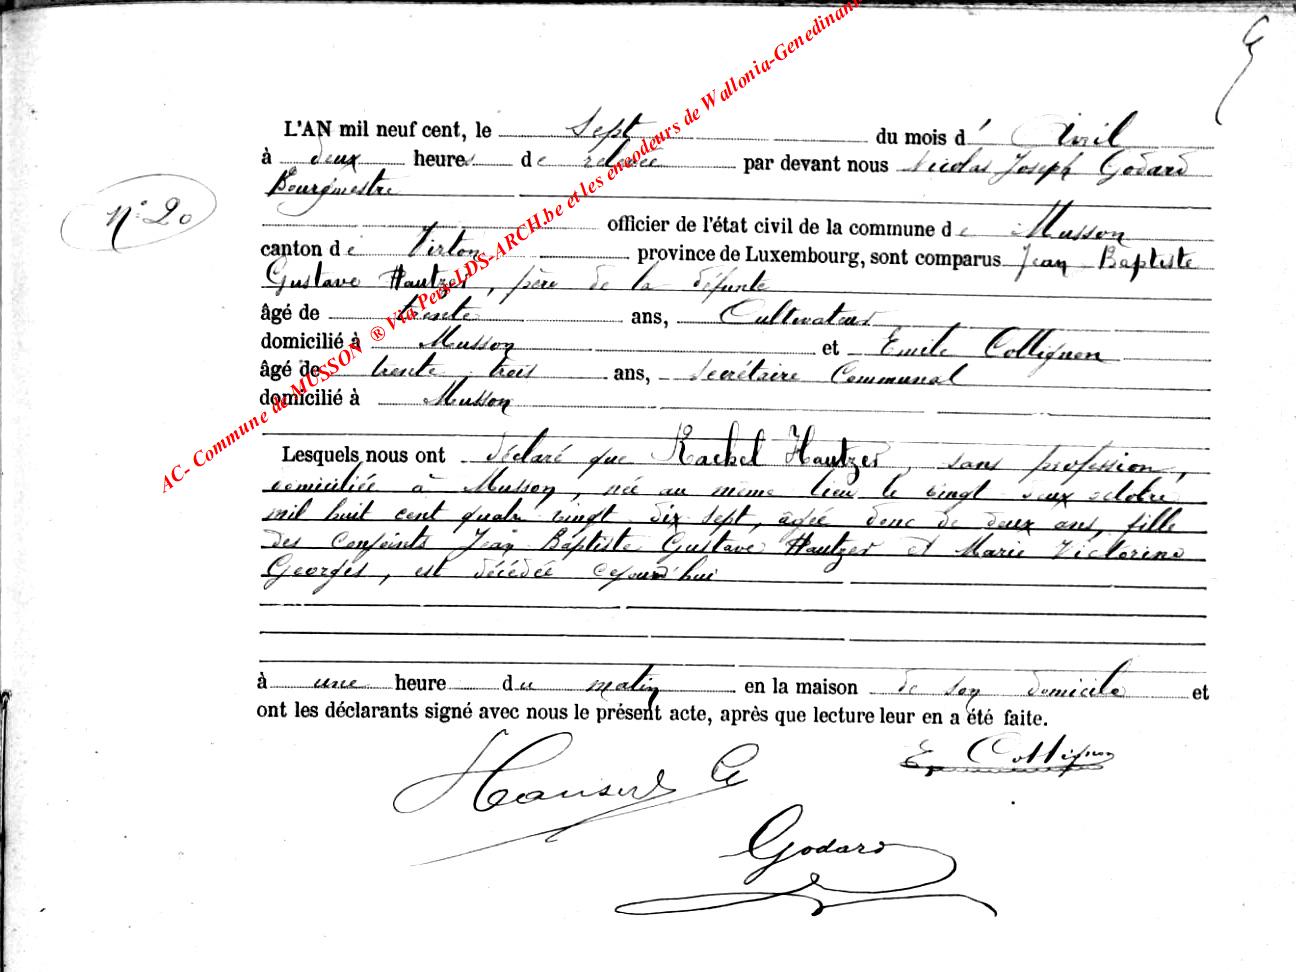 L'AN mil neuf cent, le sept du mois d' Avril
à deux heures de relevée par devant nous Nicolas Joseph Godard
Bourgmestre
N° 20
officier de l'état civil de la commune de Musson
canton de Virton province de Luxembourg, sont comparus Jean Baptiste
Gustave Hautzer, père de la défunte
âgé de trente ans, Cultivateur
domicilié à Musson et Emile Collignon
âgé de trente trois ans, secrétaire Communal
domicilié à Musson
Lesquels nous ont déclaré que Rachel Hautzer, sans profession,
domiciliée à Musson, née au même lieu le vingt deux octobre
mil huit cent quatre vingt dix sept, âgée donc de deux ans, fille
des conjoints Jean Baptiste Gustave Hautzer et Marie Victorine
Georges, est décédée cejourd'hui
à une heure du matin en la maison de son domicile et
ont les déclarants signé avec nous le présent acte, après que lecture leur en a été faite.
E. Collignon
G
Godard
AC- Commune de MUSSON ® Via Pers-LDS-ARCH.be et les encodeurs de Wallonia-Genedinant